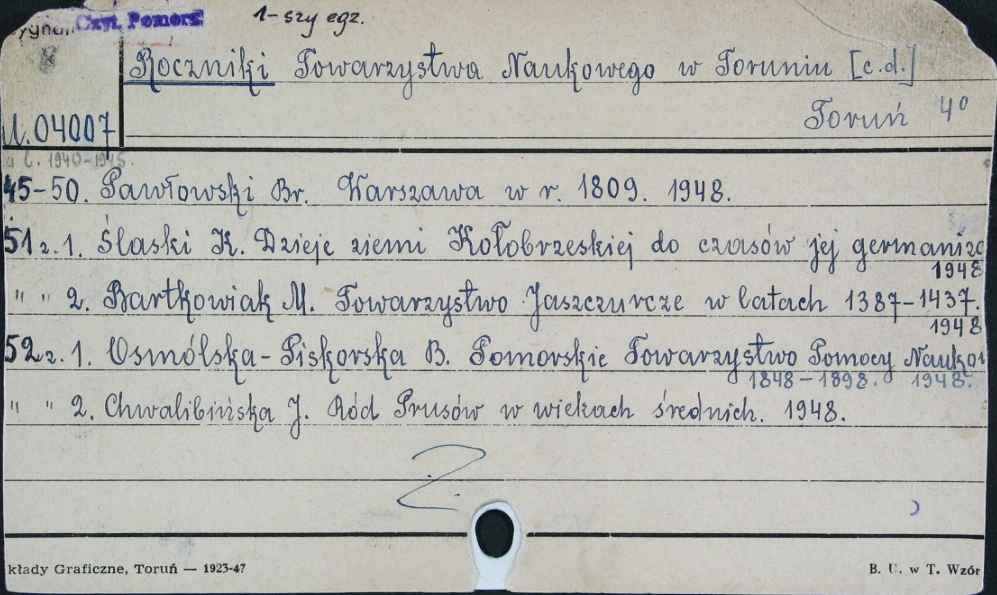 Czyt. Pomorz.
1-szy egz.
Roczniki Towarzystwa Naukowego w Toruniu [c.d.]
Toruń 4⁰
04007
1940-1945.
45-50. Pawłowski Br. Warszawa w r. 1809. 1948.
51 z. 1. Ślaski K. Dzieje ziemi Kołobrzeskiej do czasów jej germaniza
1948
" " 2. Bartkowiak M. Towarzystwo Jaszczurcze w latach 1387-1437.
1948
52 z. 1. Osmólska-Piskorska B. Pomorskie Towarzystwo Pomocy Nauko
1848-1898. 1948.
" " 2. Chwalibińska J. Ród Prusów w wiekach średnich. 1948.
Z.
kłady Graficzne, Toruń — 1923-47
B. U. w T. Wzór